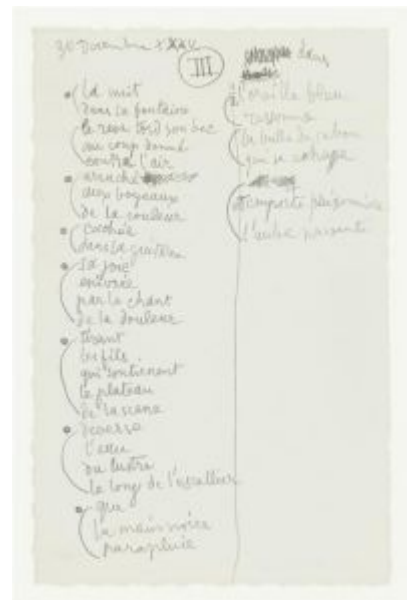 30 Decembre XXXV
III
la nuit
dans la fontaine
le reve tord son bec
au coup donné
contre l'air
arraché
aux boyaux
de la couleur
cachée
dans la
sa joie
enivrée
par le chant
de la douleur
tirant
les fils
qui soutienent
le plateau
de la scene
l'eau
du lustre
le long de l'escallier
que
la main noire
parapluie
dans
l'oreille bleu
la bulle de savon
qui se echape
emporte prisonniere
l'aube